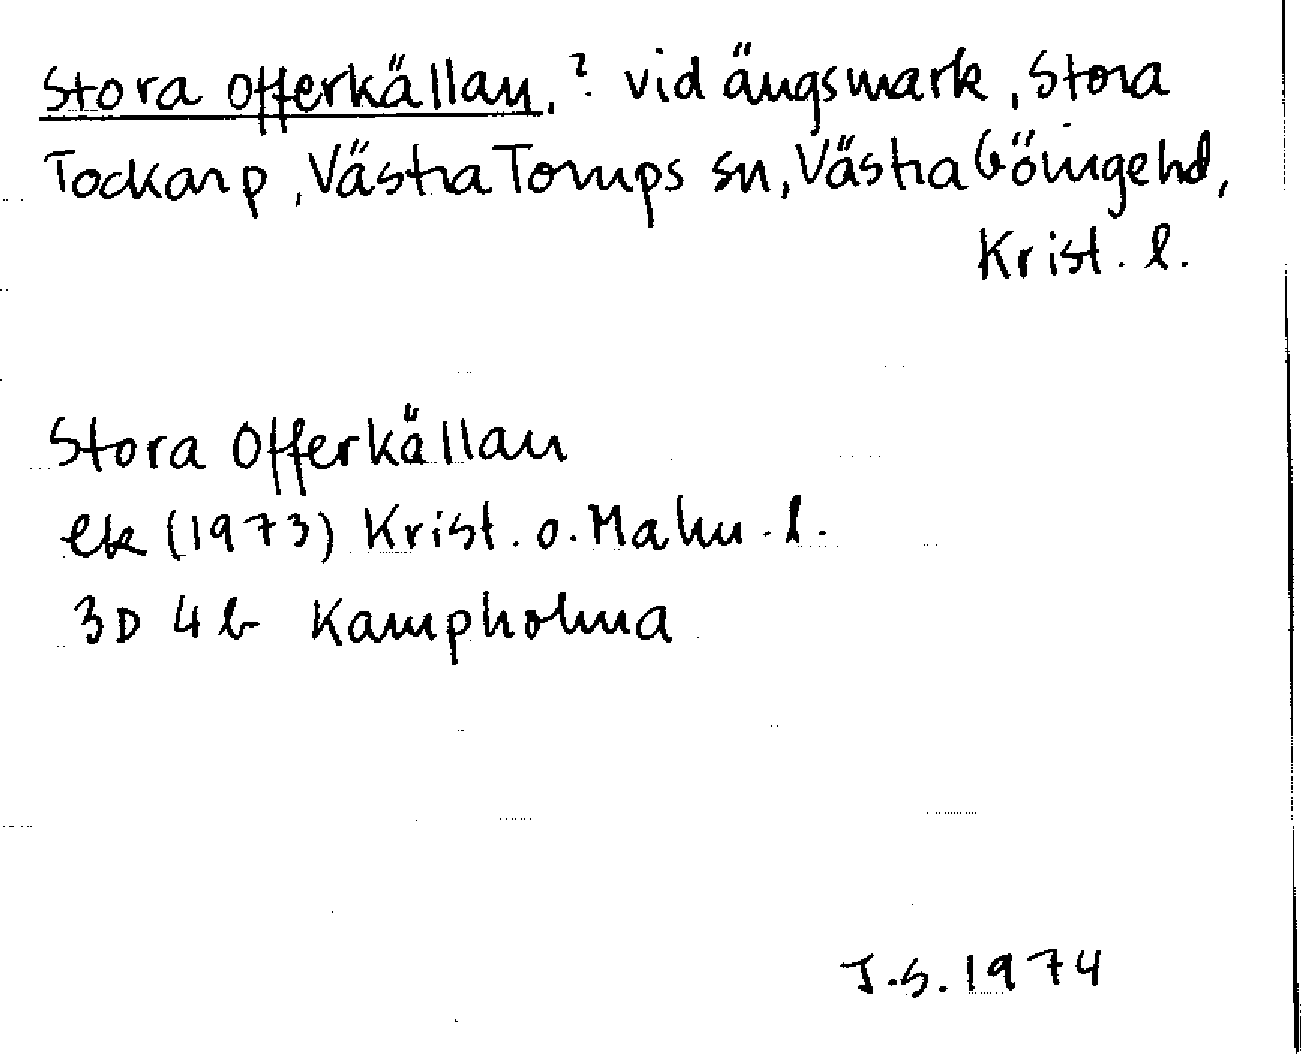 Stora Offerkällan, ? vid ängsmark, Stora
Tockarp, Västra Torups sn, Västra Göinge hd,
Krist. l.
Stora Offerkällan
ek (1973) Krist. o. Malm. l.
3D 4b Kampholma
J.S. 1974